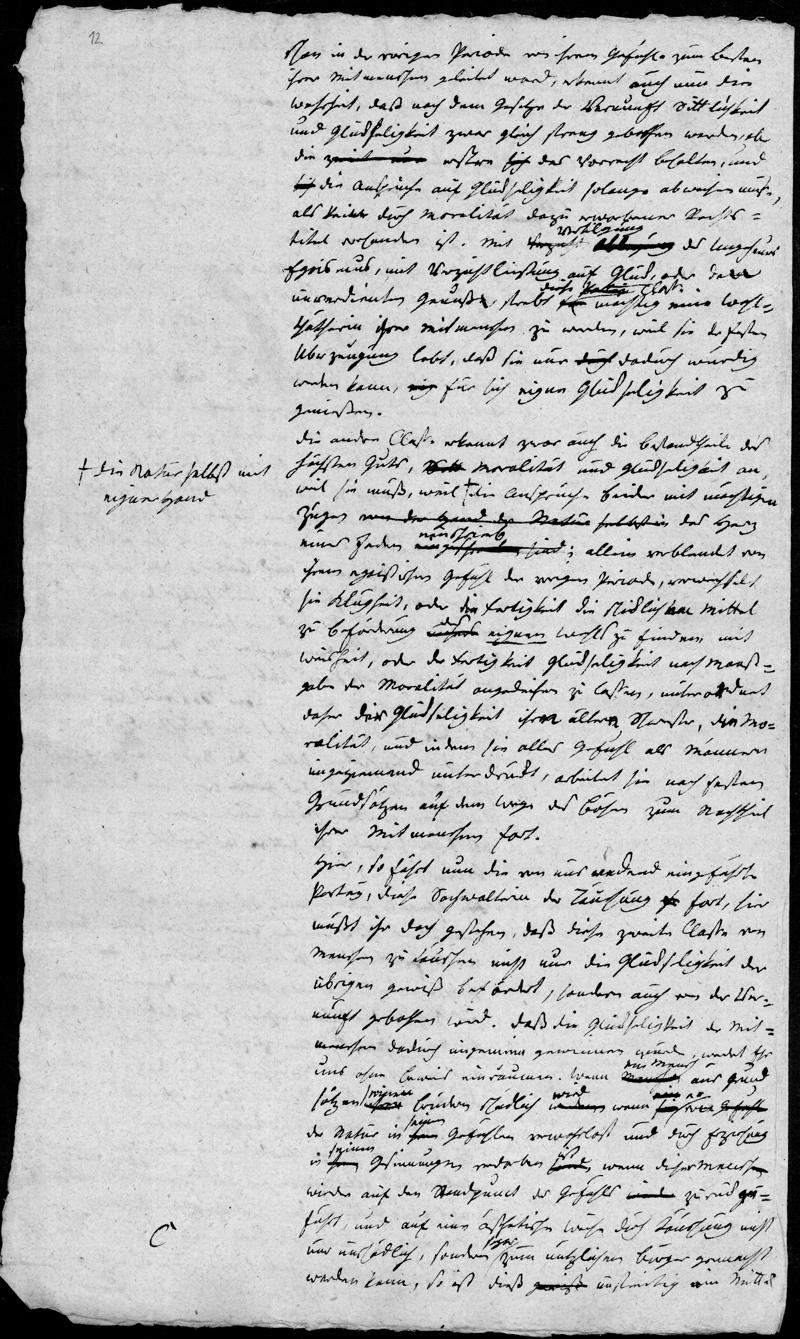 12
schon in der vorigen Periode von ihrem Gefühle zum besten
ihrer Mitmenschen geleitet ward, erkennt auch nun die
Wahrheit, daß nach dem Gesetze der Vernunft Sittlichkeit
und Glückseligkeit zwar gleich streng gebothen werden, aber
die erstere das Vorrecht behalten, und
die Ansprüche auf Glückseligkeit solange abweisen müße,
als keiner durch Moralität dazu erworbener Rechts=
titel vorhanden ist. Mit Vertilgung des Ungeheuers
Egoismus, mit Verzichtleistung auf Glück, oder dem
unverdienten Genuße, strebt diese Classe mächtig eine Wohl=
thäterin ihrer Mitmenschen zu werden, weil sie der festen
Überzeugung lebt, daß sie nur dadurch würdig
werden kann, für sich eigene Glückseligkeit zu
genießen.
Die andere Classe erkennt zwar auch die Bestandtheile des
höchsten Guts, Moralität und Glückseligkeit an,
weil sie muß, weil † die Ansprüche beider mit mächtigen
† die Natur selbst mit
eigner Hand
Zügen von der Hand der Natur selbst in das Herz
eines Jeden einschrieb; allein verblendet von
ihrem egoistischen Gefühl der vorigen Periode, verwechselt
sie Klugheit, oder die Fertigkeit die schicklichen Mittel
zu Beförderung des eigenen Wohls zu finden, mit
Weisheit, oder der Fertigkeit Glückseligkeit nach Maaß=
gabe der Moralität angedeihen zu lassen, unterordnet
daher der Glückseligkeit ihre ältere Schwester, die Mo=
ralität, und indem sie alles Gefühl als Männern
ungeziemend unterdrückt, arbeitet sie nach festen
Grundsätzen auf dem Wege des Bösen zum Nachtheil
ihrer Mitmenschen fort.
Hier, so fährt nun die von uns redend eingeführte
Partey, diese Sachwalterin der Täuschung fort, hier
müßt ihr doch gestehen, daß diese zweite Classe von
Menschen zu täuschen nicht nur die Glückseligkeit der
übrigen gewiß befördert, sondern auch von der Ver=
nunft gebothen wird. Daß die Glückseligkeit der Mit=
menschen dadurch ungemein gewinnen würde, werdet Ihr
uns ohne Beweis einräumen. Wenn ein Mensch aus Grund
sätzen seinen Brüdern schädlich wird wenn er
der Natur in seinen Gefühlen verwahrlost und durch Erziehung
in seinen Gesinnungen verdorben ist, wenn dieser Mensch
wieder auf den Standpunct des Gefühls zurück ge=
führt, und auf eine ästhetische Weise durch Täuschung nicht
nur unschädlich, sondern sogar zum nützlichen Bürger gemacht
werden kann, so ist dieß unstreitig ein Mittel
C